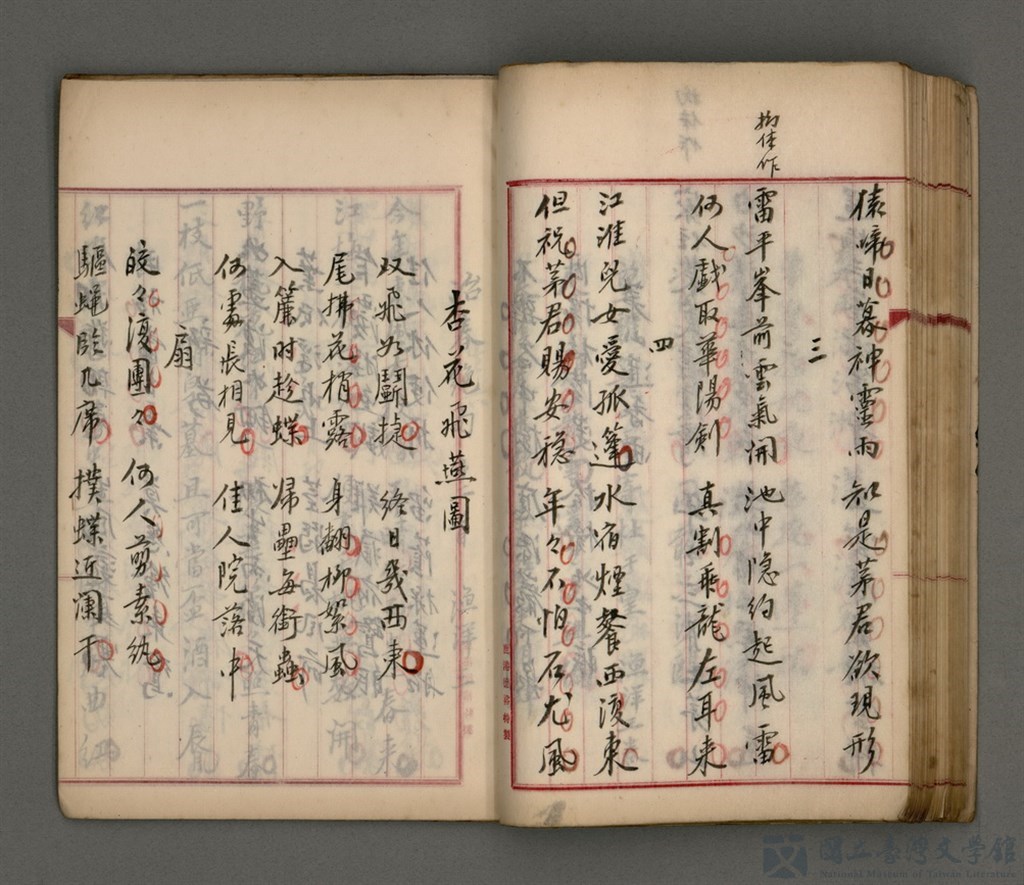 猿啼日暮神靈雨 知是茅君欲現形
三
雷平峯前雲氣開 池中隐約起風雷
拗佳作
何人戲取華陽劍 真割乖龍左耳来
四
江淮兒女愛孤篷 水宿煙餐西復東
但祝茅君賜安穏 年々不怕石尤風
杏花飛燕圖
双飛如鬪捷 終日幾西東
尾拂花梢露 身翻柳絮風
入簾时趁蝶 帰壘每銜蟲
何處長相見 佳人院落中
扇
皎々復團々 何人剪素紈
驅蠅臨几席 撲蝶近瀾干
國立臺灣文學館
National Museum of Taiwan Literature